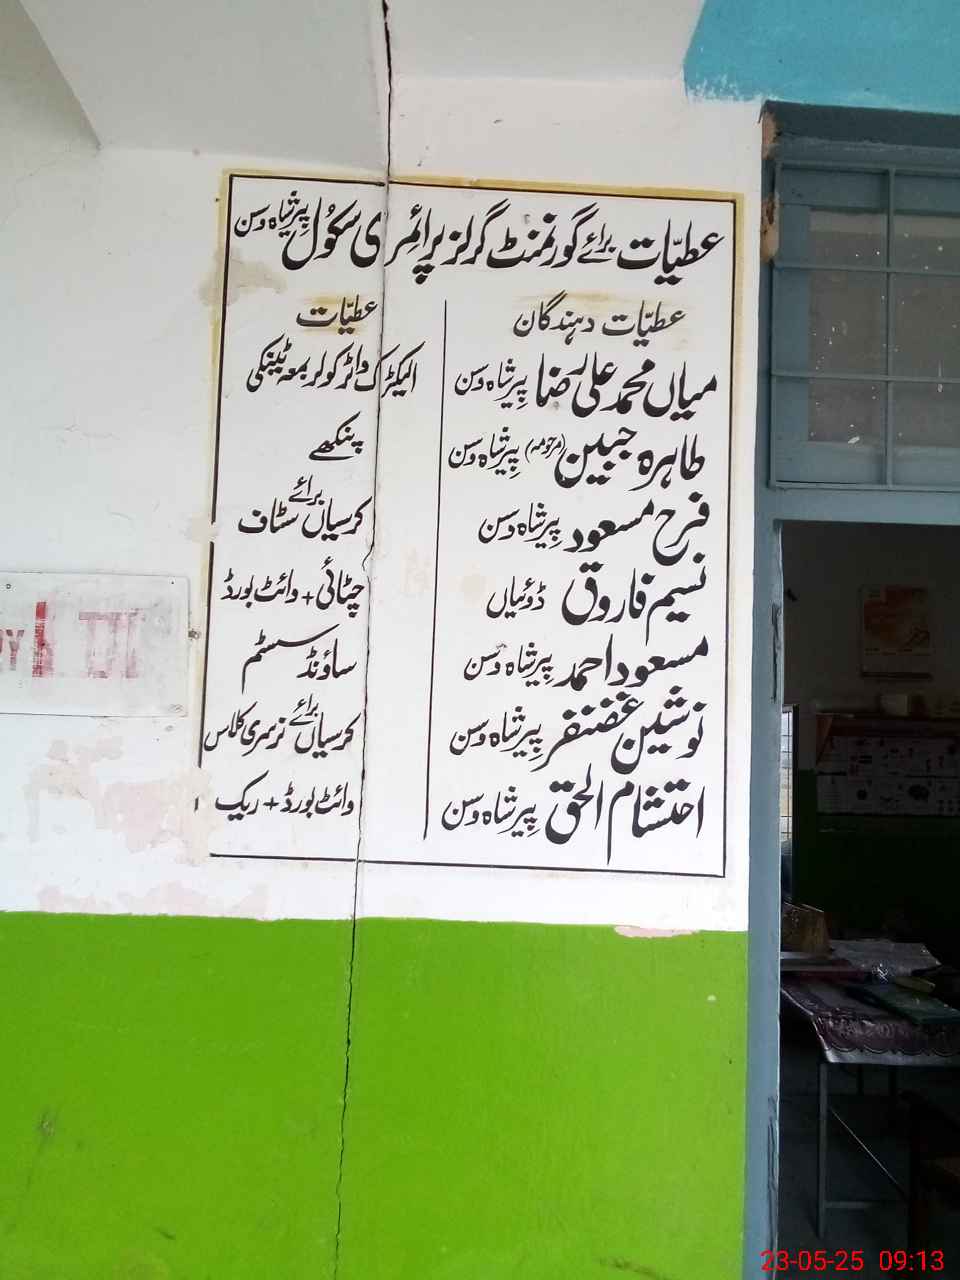 عطیّات برائے گورنمنٹ گرلز پرائمری سکول پیر شاہ وسن
عطیّات دہندگان	عطیّات
میاں محمد علی رضا پیر شاہ وسن	الیکٹرک واٹر کولر بمعہ ٹینکی
طاہرہ جبین (مرحومہ) پیر شاہ وسن	پنکھے
فرح مسعود پیر شاہ وسن	کرسیاں برائے سٹاف
نسیم فاروق ڈوئیاں	چٹائی + وائٹ بورڈ
مسعود احمد پیر شاہ وسن	ساؤنڈ سسٹم
نوشین غضنفر پیر شاہ وسن	کرسیاں برائے نرسری کلاس
احتشام الحق پیر شاہ وسن	وائٹ بورڈ + ریک
23-05-25 09:13